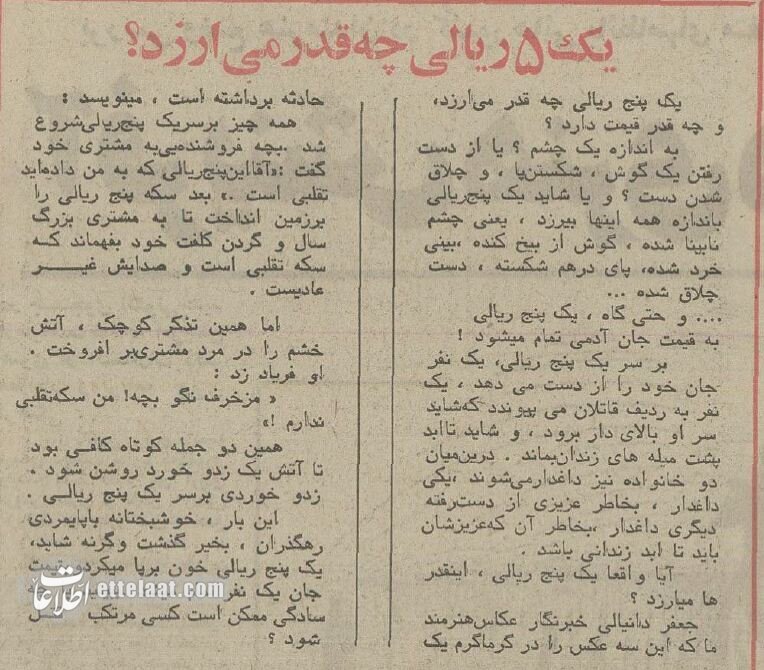 یک ۵ ریالی چه قدر می ارزد؟
یک پنج ریالی چه قدر می‌ارزد،
و چه قدر قیمت دارد ؟
به اندازه یک چشم ؟ یا از دست
رفتن یک گوش ، شکستن‌پا ، و چلاق
شدن دست ؟ و یا شاید یک پنج‌ریالی
باندازه همه اینها بیرزد ، یعنی چشم
نابینا شده ، گوش از بیخ کنده ،بینی
خرد شده، پای درهم شکسته ، دست
چلاق شده ...
.... و حتی گاه ، یک پنج ریالی
به قیمت جان آدمی تمام میشود !
بر سر یک پنج ریالی، یک نفر
جان خود را از دست می دهد ، یک
نفر به ردیف قاتلان می پیوندد که‌شاید
سر او بالای دار برود ، و شاید تاابد
پشت میله های زندان‌بماند . درین‌میان
دو خانواده نیز داغدارمی‌شوند ،یکی
داغدار ، بخاطر عزیزی از دست‌رفته
دیگری داغدار ،بخاطر آن که‌عزیزشان
باید تا ابد زندانی باشد .
آیا واقعا یک پنج ریالی ، اینقدر
ها میارزد ؟
جعفر دانیالی خبرنگار عکاس‌هنرمند
ما که این سه عکس را در گرماگرم یک
حادثه برداشته است ، مینویسد :
همه چیز برسریک پنج‌ریالی‌شروع
شد .بچه فروشنده‌یی‌به مشتری خود
گفت :«آقااین‌پنج‌ریالی که به من داده‌اید
تقلبی است .» بعد سکه پنج ریالی را
برزمین انداخت تا به مشتری بزرگ
سال و گردن کلفت خود بفهماند که
سکه تقلبی است و صدایش غیر
عادیست .
اما همین تذکر کوچک ، آتش
خشم را در مرد مشتری‌بر افروخت .
او فریاد زد :
« مزخرف نگو بچه! من سکه‌تقلبی
ندارم !»
همین دو جمله کوتاه کافی بود
تا آتش یک زدو خورد روشن شود .
زدو خوردی برسر یک پنج ریالی .
این بار ، خوشبختانه باپایمردی
رهگذران ، بخیر گذشت وگرنه شاید،
یک پنج ریالی خون برپا میکردو قیمت
جان یک نفر
سادگی ممکن است کسی مرتکب
شود ؟
اطلاعات
ettelaat.com